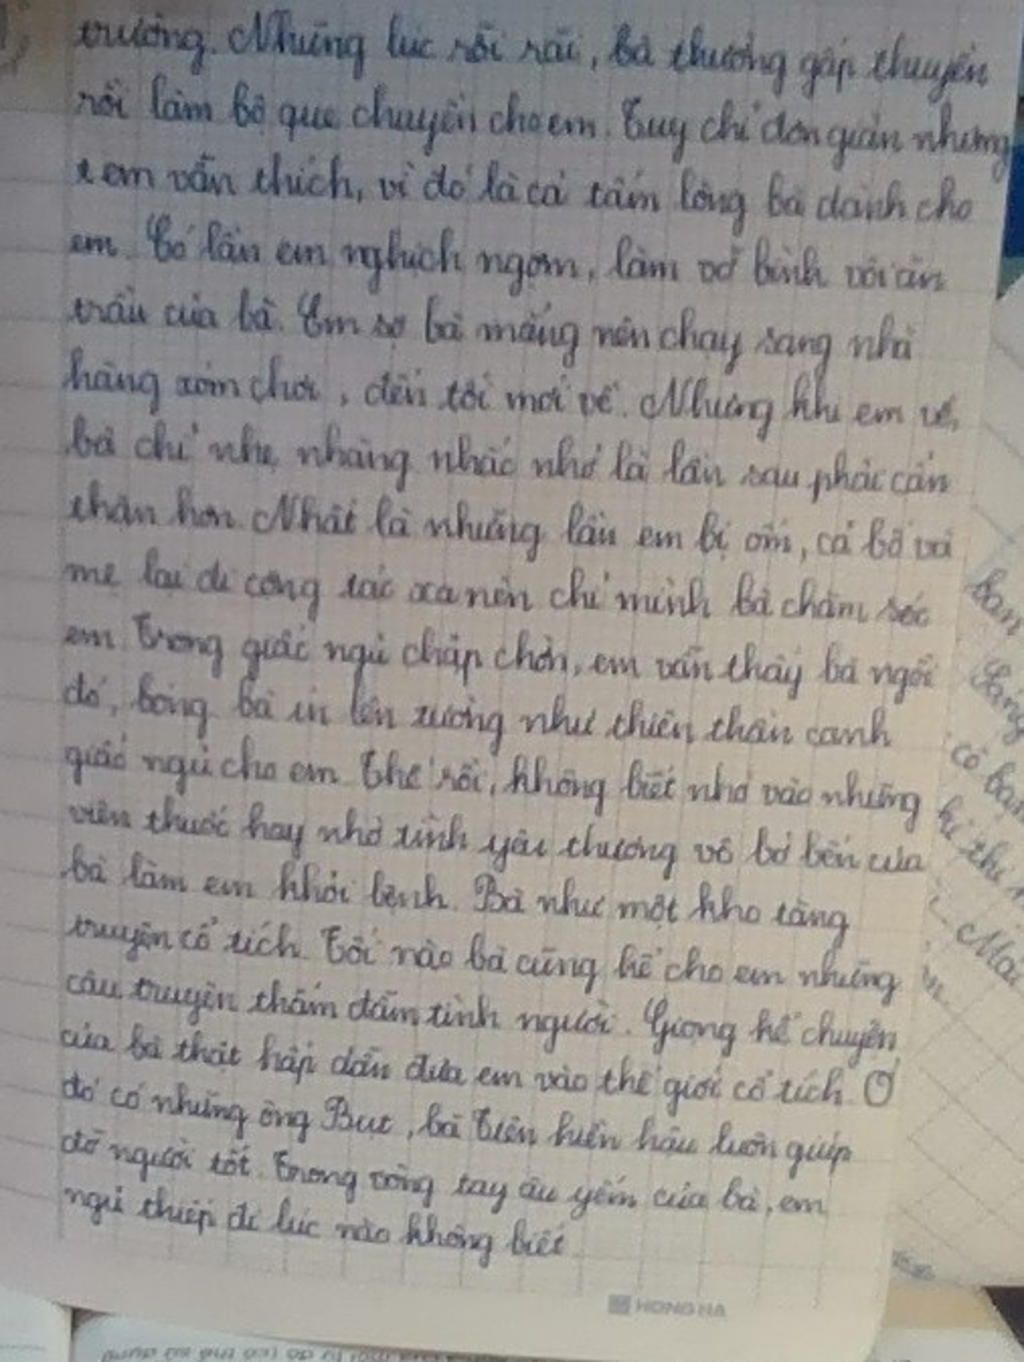 trường. Những lúc rỗi rãi, bà thường gấp thuyền
rồi làm bộ que chuyền cho em. Tuy chỉ đơn giản nhưng
em vẫn thích, vì đó là cả tấm lòng bà dành cho
em. Có lần em nghịch ngợm, làm vỡ bình vôi ăn
trầu của bà. Em sợ bà mắng nên chạy sang nhà
hàng xóm chơi, đến tối mới về. Nhưng khi em về,
bà chỉ nhẹ nhàng nhắc nhở là lần sau phải cẩn
thận hơn. Nhất là những lần em bị ốm, cả bố và
mẹ lại đi công tác xa nên chỉ mình bà chăm sóc
em. Trong giấc ngủ chập chờn, em vẫn thấy bà ngồi
đó, bóng bà in lên tường như thiên thần canh
giấc ngủ cho em. Thế rồi, không biết nhờ vào những
viên thuốc hay nhờ tình yêu thương vô bờ bến của
bà làm em khỏi bệnh. Bà như một kho tàng
truyện cổ tích. Tối nào bà cũng kể cho em những
câu truyện thấm đẫm tình người. Giọng kể chuyện
của bà thật hấp dẫn đưa em vào thế giới cổ tích. Ở
đó có những ông Bụt, bà Tiên hiền hậu luôn giúp
đỡ người tốt. Trong vòng tay âu yếm của bà, em
ngủ thiếp đi lúc nào không biết.
HONG HA